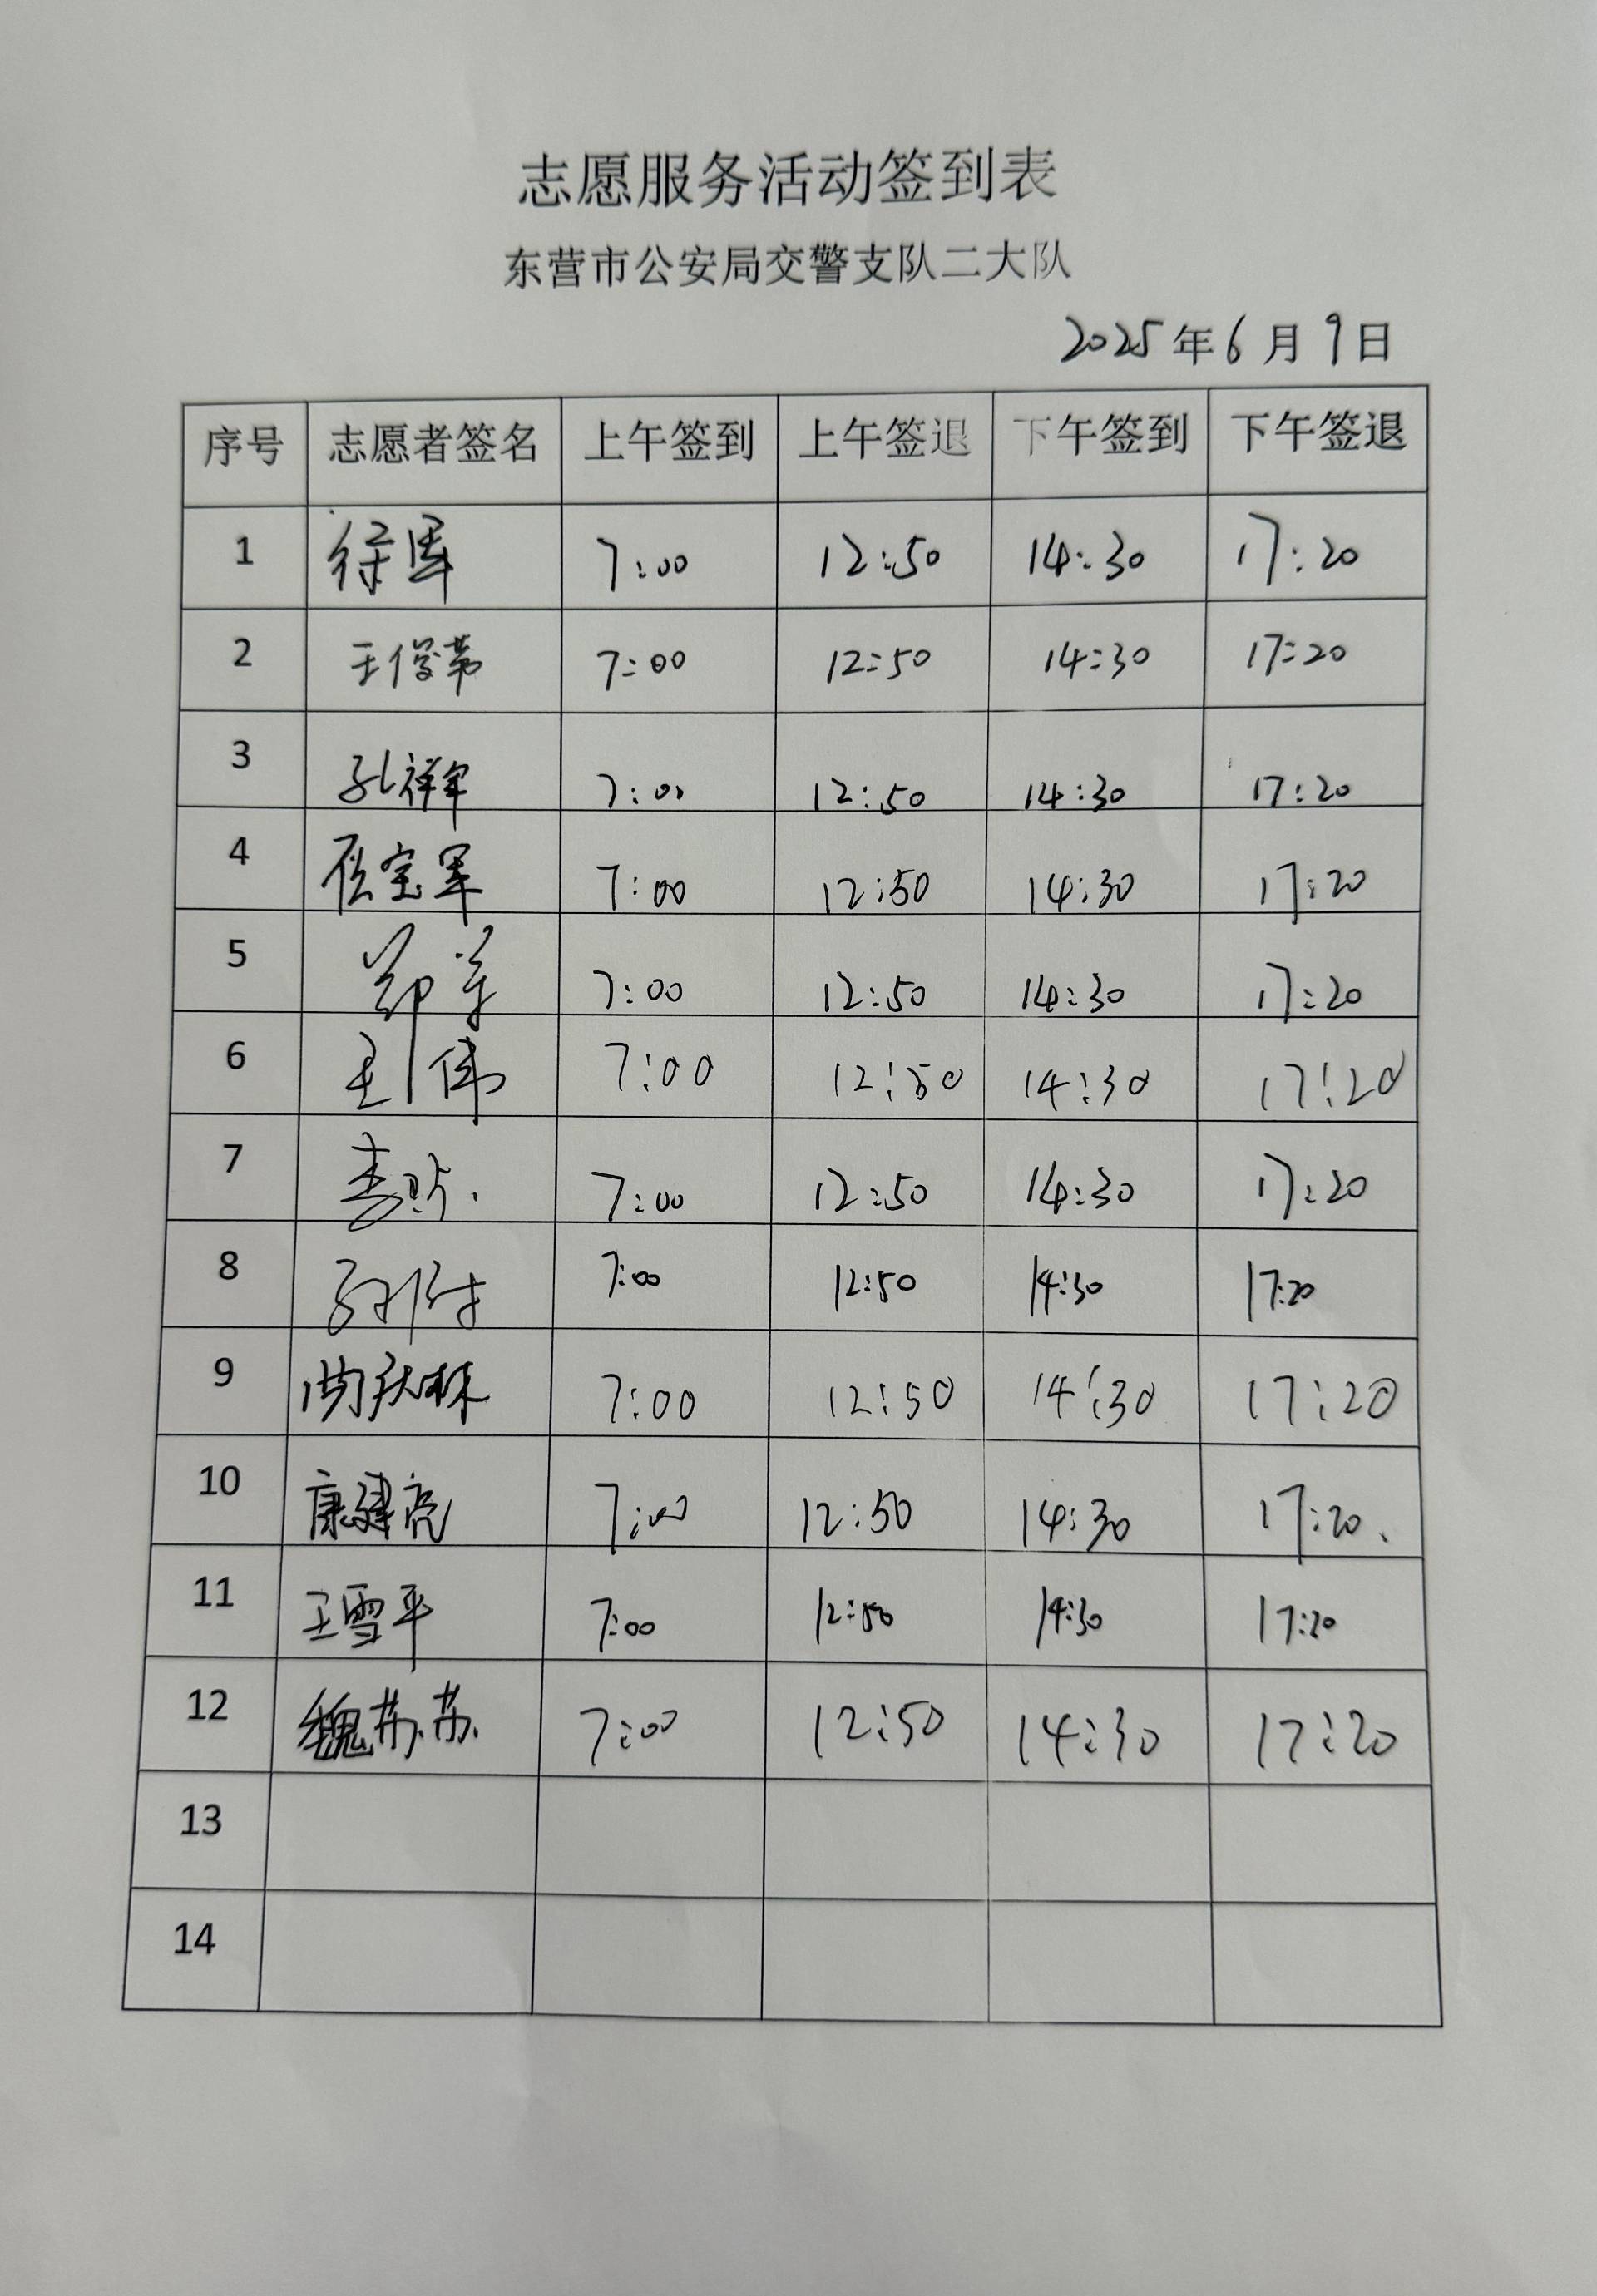 志愿服务活动签到表
东营市公安局交警支队二大队
2025年6月9日
序号 志愿者签名 上午签到 上午签退 下午签到 下午签退
1 徐军 7:00 12:50 14:30 17:20
2 王俊苇 7:00 12:50 14:30 17:20
3 孔祥军 7:00 12:50 14:30 17:20
4 宝军 7:00 12:50 14:30 17:20
5 郑 7:00 12:50 14:30 17:20
6 伟 7:00 12:50 14:30 17:20
7 7:00 12:50 14:30 17:20
8 7:00 12:50 14:30 17:20
9 尚庆林 7:00 12:50 14:30 17:20
10 康建亮 7:00 12:50 14:30 17:20、
11 王雪平 7:00 12:50 14:30 17:20
12 魏苏苏 7:00 12:50 14:30 17:20
13
14